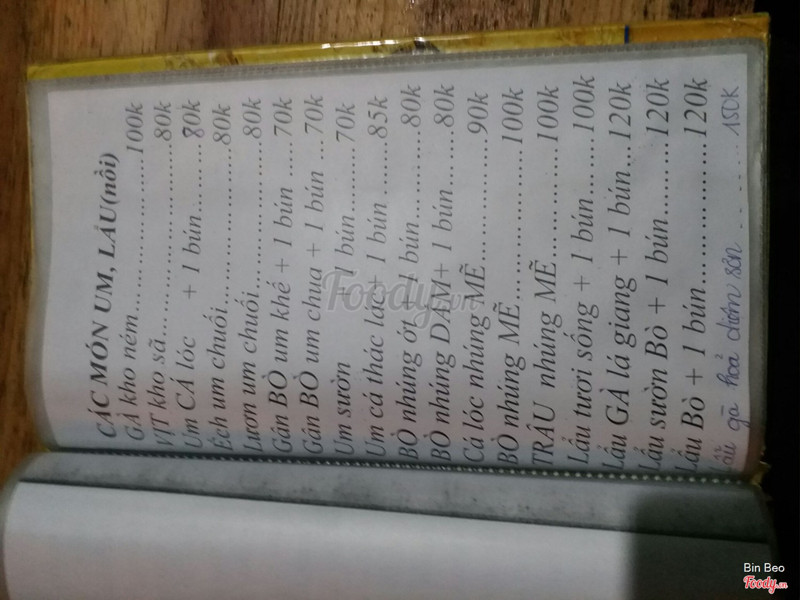 CÁC MÓN UM, LẨU(nồi)
GÀ kho ném.....................100k
VỊT kho sã.........................80k
Um CÁ lóc + 1 bún.........80k
Ếch um chuối....................80k
Lươn um chuối..................80k
Gân BÒ um khế + 1 bún .....70k
Gân BÒ um chua + 1 bún ...70k
Um sườn + 1 bún..........70k
Um cá thác lác+ 1 bún ........85k
BÒ nhúng ớt + 1 bún..........80k
BÒ nhúng DẤM+ 1 bún........80k
Cá lóc nhúng MẼ...............90k
BÒ nhúng MẼ....................100k
TRÂU nhúng MẼ...............100k
Lẩu tươi sống + 1 bún........100k
Lẩu GÀ lá giang + 1 bún...120k
Lẩu sườn Bò + 1 bún........120k
Lẩu Bò + 1 bún..................120k
Lẩu gà hoả diệm sơn ....... 150K
Foody.vn
Bin Beo
Foody.vn